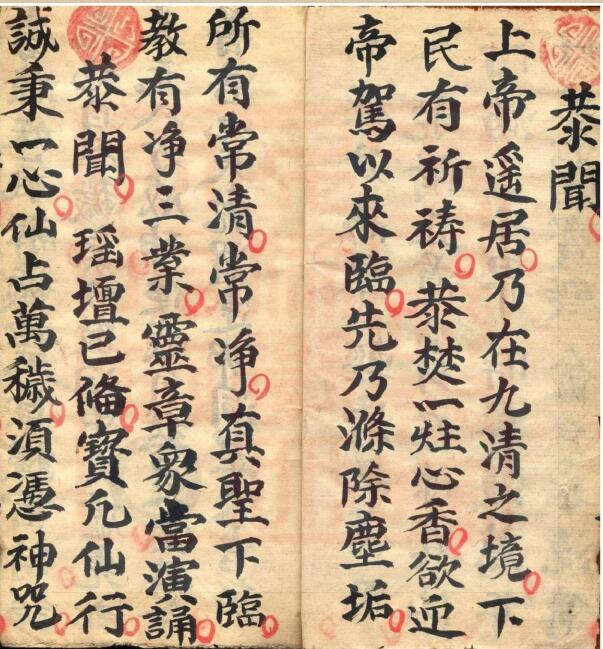 恭聞
上帝遥居乃在九清之境下
民有祈祷恭焚一炷心香欲迎
帝駕以來臨先乃滌除塵垢
所有常清常净真聖下臨
教有净三業靈章衆當演誦
恭聞瑶壇已俻寳几仙行
誠秉一心仙占萬穢湏憑神咒